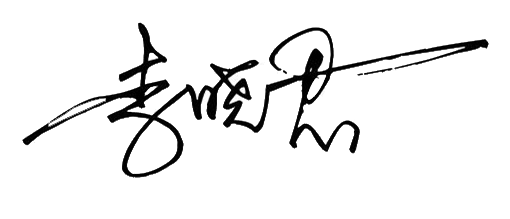 李晓君